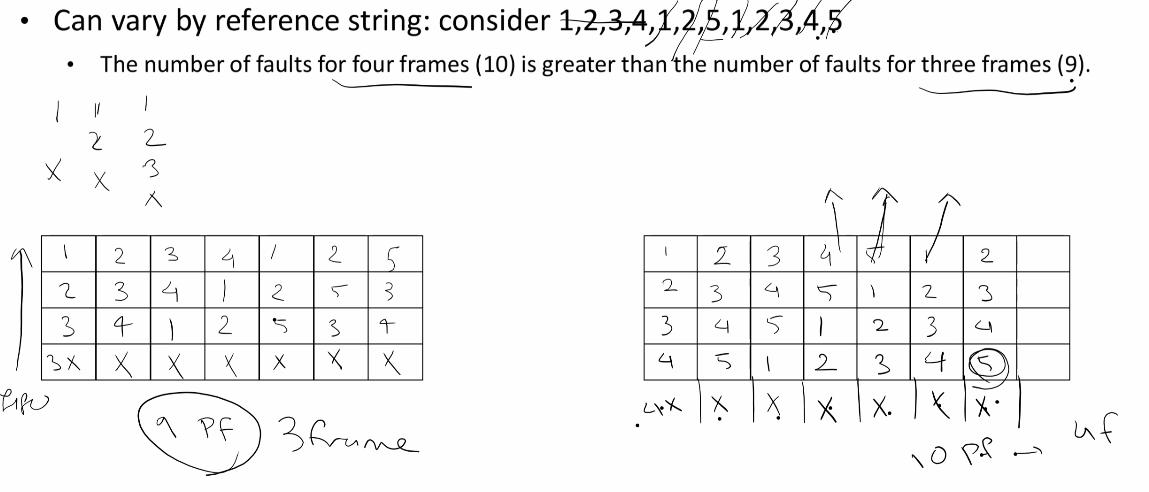 • Can vary by reference string: consider 1,2,3,4,1,2,5,1,2,3,4,5
• The number of faults for four frames (10) is greater than the number of faults for three frames (9).
1 11 1
2 2
X X 3
X
1 2 3 4 1 2 5
2 3 4 1 2 5 3
3 4 1 2 5 3 4
3X X X X X X X
fifo
9 PF 3 frame
1 2 3 4 5 1 2
2 3 4 5 1 2 3
3 4 5 1 2 3 4
4 5 1 2 3 4 5
4X X X X X X X
10 PF → 4f